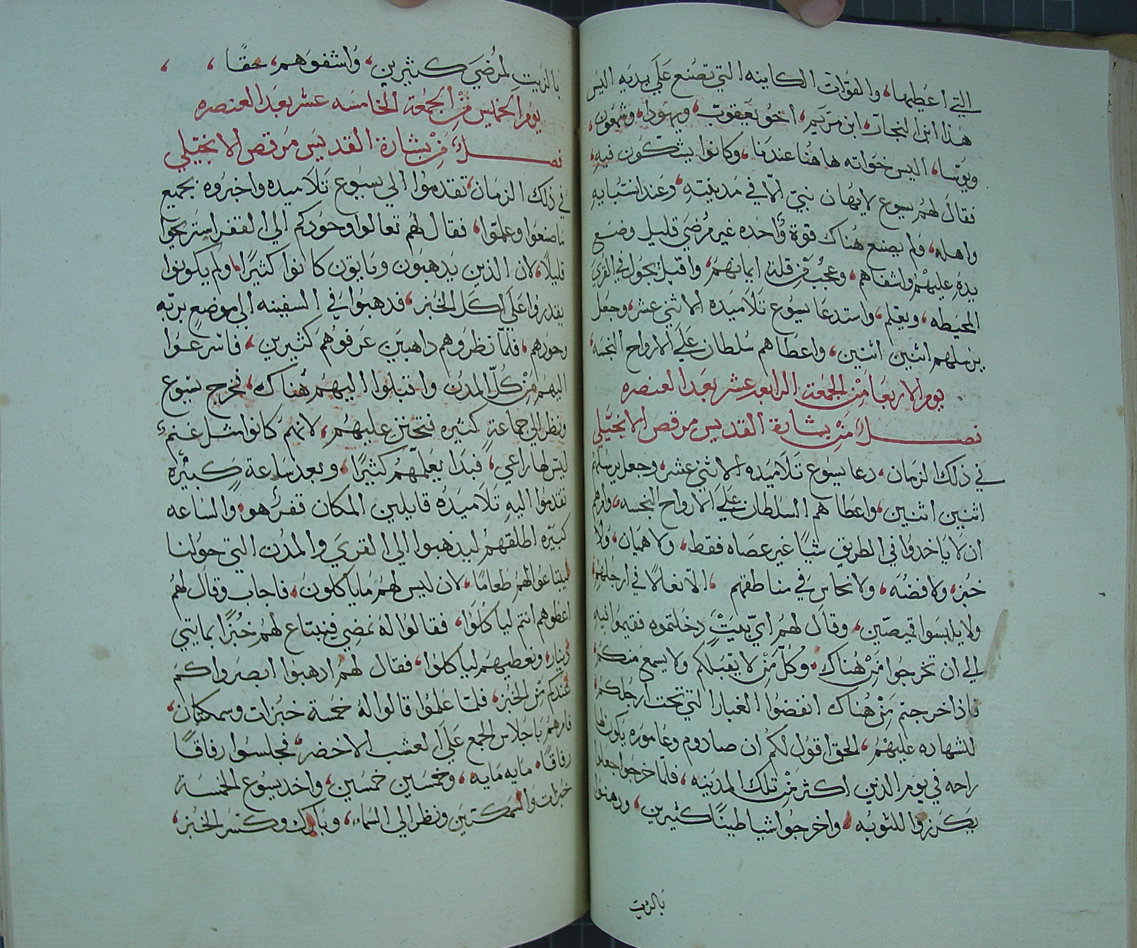 التي اعطيها، والقوات الكاينه التي تصنع علي يديه اليس
هذا ابن النجار، ابن مريم، اخو يعقوب، ويهودا، وشمعون،
ويوسا، اليس خواته هاهنا عندنا، وكانوا يشكون فيه،
فقال لهم يسوع لا يهان نبي الا في مدينته، وعند انسبايه
واهله، ولم يصنع هناك قوة واحده غير مرضي قليل وضع
يده عليهم واشفاهم، وعجب من قلة ايمانهم، واقبل يجوا في القري
المحيطه، ويعلم، واستدعا يسوع تلاميده الاثني عشر، وجعل
يرسلهم اثنين اثنين، واعطاهم سلطان علي الارواح النجسه،
يوم الاربعا من الجمعة الرابعه عشر بعد العنصره
فصل من بشارة القديس مرقص الانجيلي
في ذلك الزمان، دعا يسوع تلاميده الاثني عشر، وجعل يرسلهم
اثنين اثنين، واعطاهم السلطان علي الارواح النجسه، وامرهم
ان لا ياخدوا في الطريق شيا غير عصاه فقط، ولا هميان، ولا
خبز، ولا فضه، ولا نحاس في مناطقهم، الا نعالا في ارجلهم،
ولا يلبسوا قميصين، وقال لهم اي بيت دخلتموه فقيموا فيه
الي ان تخرجوا من هناك، وكل من لا يقبلكم ولا يسمع منكم،
فادا خرجتم من هناك انفضوا الغبار التي تحت ارجلكم،
للشهاره عليهم، الحق اقول لكم ان صادوم وعاموره يكون لها
راحه في يوم الدين اكثر من تلك المدينه، فلما خرجوا جعلوا
يكرزوا للتوبه، واخرجوا شياطينا كثيرين، ودهنوا
بالزيت
بالزيت لمرضي كثيرين، واشفوهم، حقا،
يوم الخميس من الجمعة الخامسه عشر بعد العنصره
فصل من بشارة القديس مرقص الانجيلي
في ذلك الزمان، تقدموا الي يسوع تلاميده واخبروه بجميع
ما صنعوا وعلموا، فقال لهم تعالوا وحودكم الي القفر استريحوا
قليلا، لان الذين يدهبون ويابون كانوا كثيرا، ولم يكونوا
يقدروا علي اكل الخبز، فدهبوا في السفينه الي موضع بريه
وحودهم، فلما نظروهم داهبين عرفوهم كثيرين، فاسرعوا
اليهم من كل المدن واقبلوا اليهم هناك، فخرج يسوع
ونظر الي جماعة كثيره فتحنن عليهم، لانهم كانوا مثل غنم،
ليس لها راعي، فبدا يعلمهم كثيرا، وبعد ساعة كبيره
تقدموا اليه تلاميده قايلين المكان تفر هو، والساعه
كبيره اطلقهم ليدهبوا الي القري والمدن التي حولنا
ليبتاعوا لهم طعاما، لان ليس لهم ما ياكلون، فاجاب وقال لهم
اعطوهم انتم لياكلوا، فقالوا له نمضي فنبتاع لهم خبزا بمايتي
دينار، ونعطيهم لياكلوا، فقال لهم ادهبوا ابصروا كم
عندكم من الخبز، فلما علموا قالوا له خمسة خبزات وسمكتان،
فامرهم باجلاس الجمع علي العشب الاخضر، فجلسوا رفاقا
رفاقا، مايه مايه، وخمسين خمسين، واخد يسوع الخمسة
خبزات والسمكتين ونظر الي السماء، وبارك وكسر الخبز،